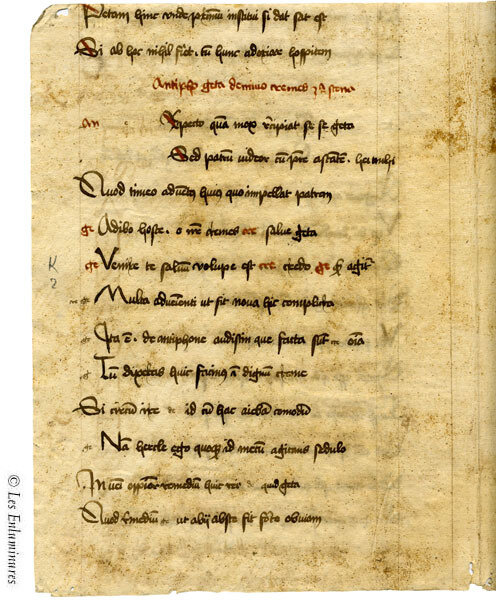 Petam hinc unde primum institui si dat sat est
Si ab hoc nihil fiet. tu hunc adoriar hospitem
Antipho geta demipho cremes
an Expecto qua mox recipiat se se geta
Sed patruu video cu patre astate. hei mihi
Quod timeo adventus huius quo impellat patrem
ge Adibo hosce. o noster cremes cre salve geta
ge Venire te salvum volupe est cre credo ge quid agitur
Multa advenienti ut fit nova hic compluria
Ita e. de antiphone audistin que facta sunt oia
Tu dixeras huic facinus indignum creme
Si circum ire de id cu hac aiebam comodum
ge Na hercle ego quoque id mecu agitans sedulo
Inveni opinor remedium huic rei de quid geta
Quod remedium ge ut abii abs te fit forte obviam
K
2
© Les Enluminures